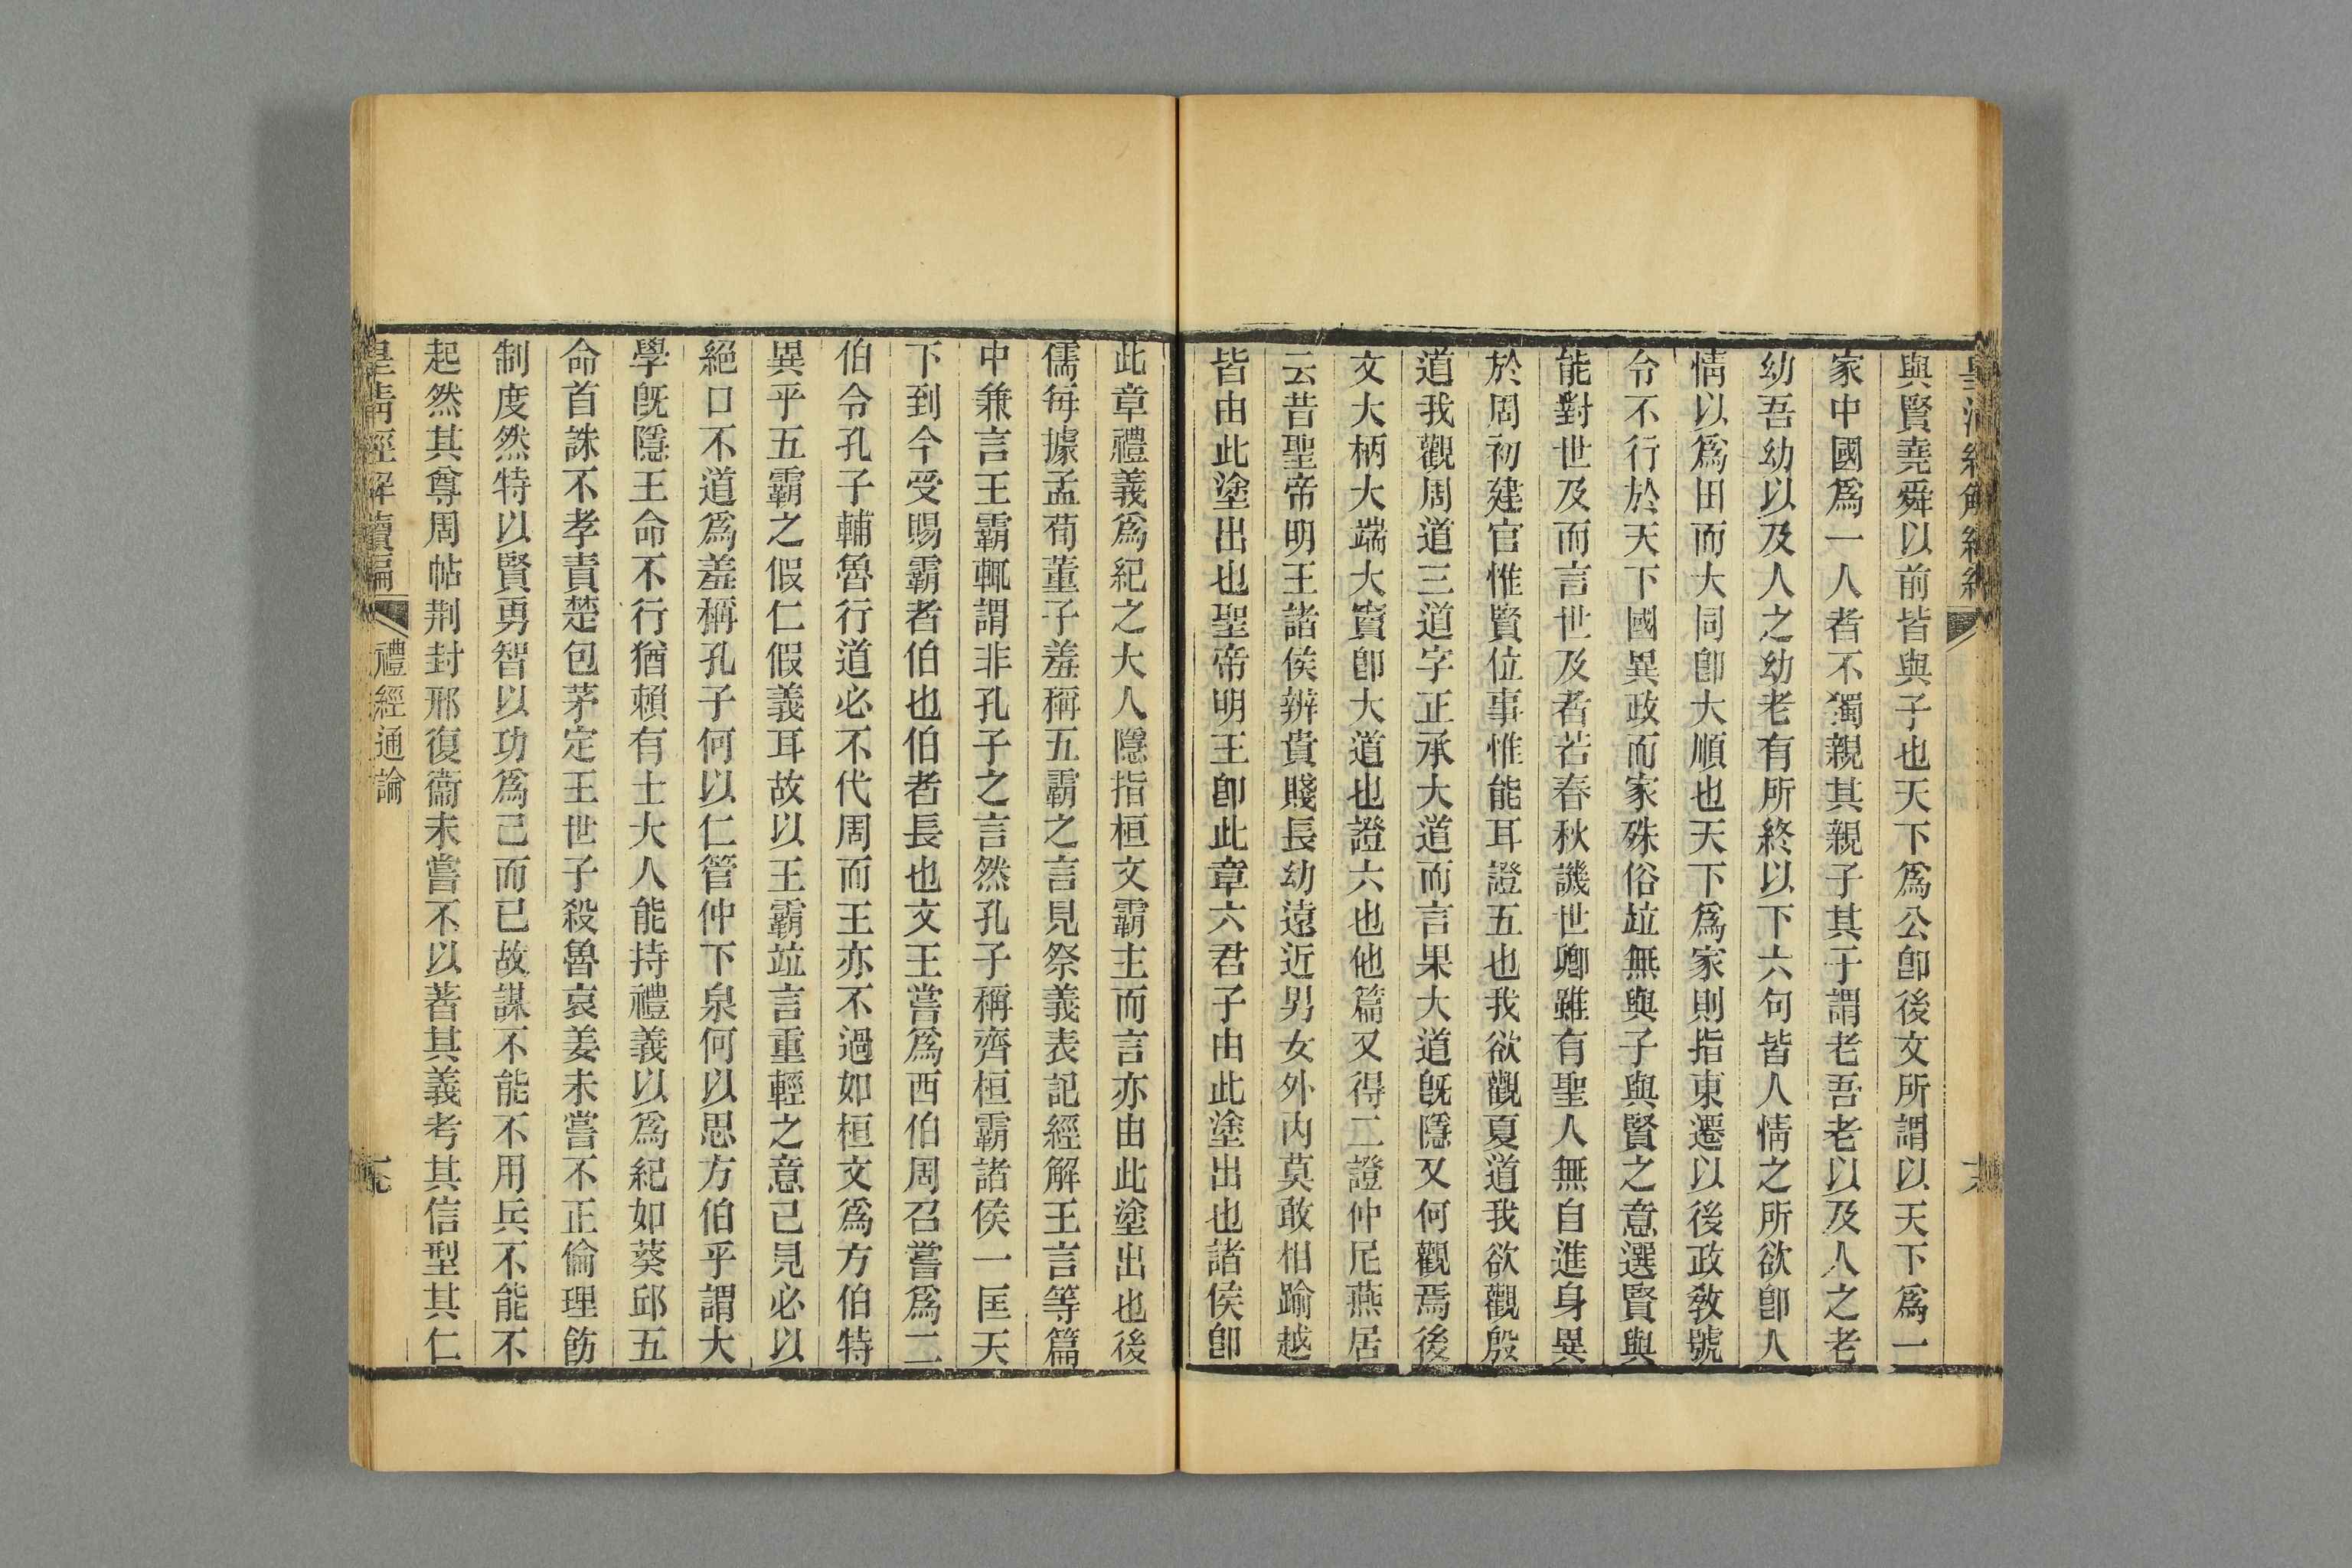 與賢堯舜以前皆與子也天下爲公卽後文所謂以天下爲一
家中國爲一人者不獨親其親子其子謂老吾老以及人之老
幼吾幼以及人之幼老有所終以下六句皆人情之所欲卽人
情以爲田而大同卽大順也天下爲家則指東遷以後政敎號
令不行於天下國異政而家殊俗竝無與子與賢之意選賢與
能對世及而言世及者若春秋譏世卿雖有聖人無自進身異
於周初建官惟賢位事惟能耳證五也我欲觀夏道我欲觀殷
道我觀周道三道字正承大道而言果大道旣隱又何觀焉後
文大柄大端大竇卽大道也證六也他篇又得二證仲尼燕居
云昔聖帝明王諸侯辨貴賤長幼遠近男女外內莫敢相踰越
皆由此塗出也聖帝明王卽此章六君子由此塗出也諸侯卽
此章禮義爲紀之大人隱指桓文霸主而言亦由此塗出也後
儒每據孟荀董子羞稱五霸之言見祭義表記經解王言等篇
中兼言王霸輒謂非孔子之言然孔子稱齊桓霸諸侯一匡天
下到今受賜霸者伯也伯者長也文王嘗爲西伯周召嘗爲二
伯令孔子輔魯行道必不代周而王亦不過如桓文爲方伯特
異乎五霸之假仁假義耳故以王霸竝言重輕之意已見必以
絕口不道爲羞稱孔子何以仁管仲下泉何以思方伯乎謂大
學旣隱王命不行猶賴有士大人能持禮義以爲紀如葵邱五
命首誅不孝責楚包茅定王世子殺魯哀姜未嘗不正倫理飭
制度然特以賢勇智以功爲己而已故謀不能不用兵不能不
起然其尊周帖荆封邢復衞未嘗不以著其義考其信型其仁
皇淸經解續編
禮經通論